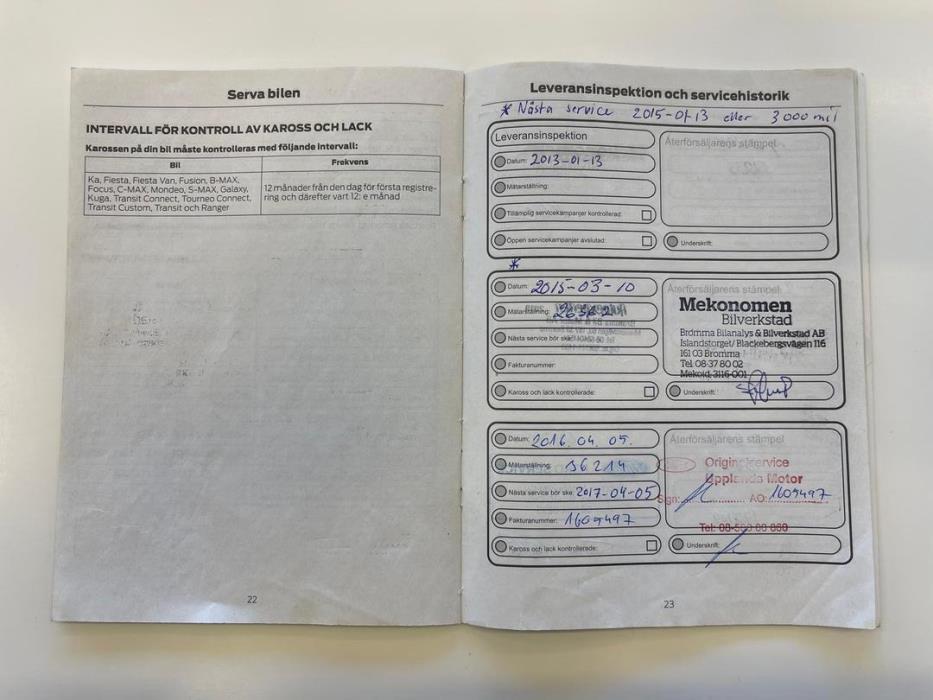 Serva bilen
INTERVALL FÖR KONTROLL AV KAROSS OCH LACK
Karossen på din bil måste kontrolleras med följande intervall:
Bil Frekvens
Ka, Fiesta, Fiesta Van, Fusion, B-MAX,
Focus, C-MAX, Mondeo, S-MAX, Galaxy,
Kuga, Transit Connect, Tourneo Connect,
Transit Custom, Transit och Ranger
12 månader från den dag för första registre-
ring och därefter vart 12: e månad
22
Leveransinspektion och servicehistorik
* Nästa service 2015-01-13 eller 3000 mil
Leveransinspektion
Datum: 2013-01-13
Mätarställning:
Tillämplig servicekampanjer kontrollerad:
Öppen servicekampanjer avslutad:
Återförsäljarens stämpel
Underskrift:
*
Datum: 2015-03-10
Mätarställning:
Nästa service bör ske:
Fakturanummer:
Kaross och lack kontrollerade:
Återförsäljarens stämpel
Mekonomen
Bilverkstad
Bromma Bilanalys & Bilverkstad AB
Islandstorget/ Blackebergsvägen 116
161 03 Bromma
Tel. 08-37 80 02
Mekoid. 3116-001
Underskrift:
Datum: 2016.04.05.
Mätarställning: 36214
Nästa service bör ske: 2017-04-05
Fakturanummer: 1609497
Kaross och lack kontrollerade:
Återförsäljarens stämpel
Originalservice
Upplands Motor
Sign: AO: 1609497
Underskrift:
23